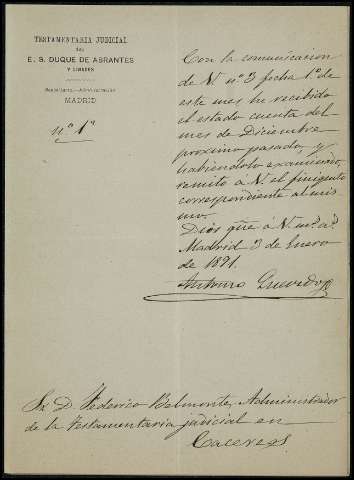 TESTAMENTARIA JUDICIAL
DEL
E. S. DUQUE DE ABRANTES
Y LINARES
MADRID
nº 1º
Con la comunicacion
de V. nº 3 fecha 1º de
este mes he recibido
el estado cuenta del
mes de Diciembre
proximo pasado, y
habiéndolo examinado,
remito á V. el finiquito
correspondiente al mis
mo.
Dios gue á V. ms. as.
Madrid 3 de Enero
de 1891.
Arturo Quevedo
Sr. D. Federico Belmonte, Administrador
de la Testamentaria judicial en
Caceres